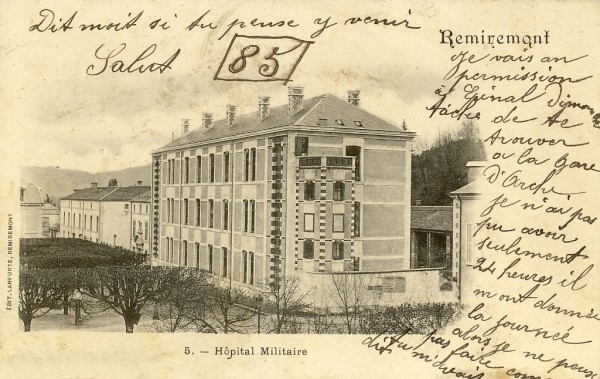 Dit moit si tu peuse y venir
Salut
85
Remiremont
Je vais an
permission
à Epinal Dimanche
tache de te
trouver
a la Gare
D'Arche
je n'ai pas
pu avoir
seulement
24 heures il
m ont donnée
la journée
alors je ne peuse
pas faire comme
tu m'avais
dit
ÉDIT. LAHFURTE, REMIREMONT
5. — Hôpital Militaire